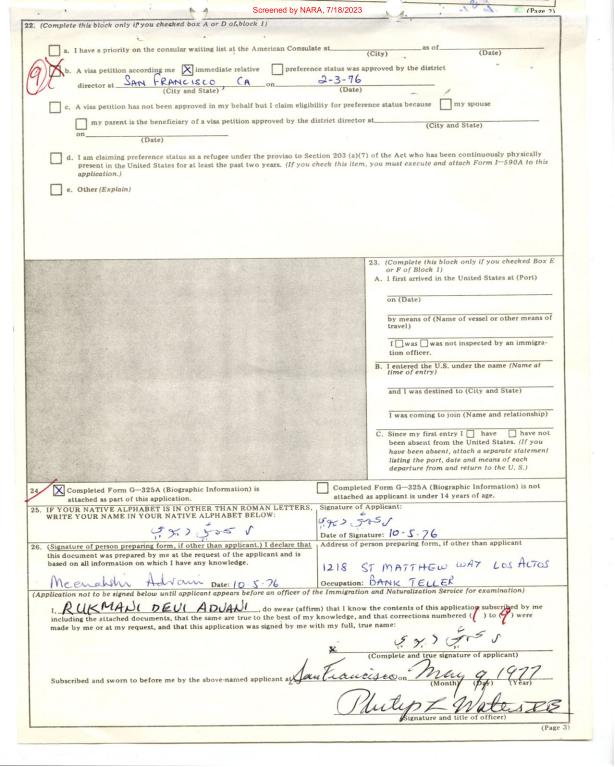 Screened by NARA, 7/18/2023
(Page 2)
22. (Complete this block only if you checked box A or D of block 1)
a. I have a priority on the consular waiting list at the American Consulate at as of
(City) (Date)
9 X b. A visa petition according me X immediate relative preference status was approved by the district
director at SAN FRANCISCO, CA on 2-3-76
(City and State) (Date)
c. A visa petition has not been approved in my behalf but I claim eligibility for preference status because my spouse
my parent is the beneficiary of a visa petition approved by the district director at
(City and State)
on
(Date)
d. I am claiming preference status as a refugee under the proviso to Section 203 (a)(7) of the Act who has been continuously physically
present in the United States for at least the past two years. (If you check this item, you must execute and attach Form I-590A to this
application.)
e. Other (Explain)
23. (Complete this block only if you checked Box E
or F of Block 1)
A. I first arrived in the United States at (Port)
on (Date)
by means of (Name of vessel or other means of
travel)
I was was not inspected by an immigra-
tion officer.
B. I entered the U.S. under the name (Name at
time of entry)
and I was destined to (City and State)
I was coming to join (Name and relationship)
C. Since my first entry I have have not
been absent from the United States. (If you
have been absent, attach a separate statement
listing the port, date and means of each
departure from and return to the U. S.)
24. X Completed Form G-325A (Biographic Information) is
attached as part of this application.
Completed Form G-325A (Biographic Information) is not
attached as applicant is under 14 years of age.
25. IF YOUR NATIVE ALPHABET IS IN OTHER THAN ROMAN LETTERS,
WRITE YOUR NAME IN YOUR NATIVE ALPHABET BELOW:
Signature of Applicant:
Date of Signature: 10-5-76
26. (Signature of person preparing form, if other than applicant.) I declare that
this document was prepared by me at the request of the applicant and is
based on all information on which I have any knowledge.
Meenakshi Advani Date: 10.5.76
Address of person preparing form, if other than applicant
1218 ST MATTHEW WAY LOS ALTOS
Occupation: BANK TELLER
(Application not to be signed below until applicant appears before an officer of the Immigration and Naturalization Service for examination)
I, RUKMANI DEVI ADVANI, do swear (affirm) that I know the contents of this application subscribed by me
including the attached documents, that the same are true to the best of my knowledge, and that corrections numbered (1) to (9) were
made by me or at my request, and that this application was signed by me with my full, true name:
x
(Complete and true signature of applicant)
Subscribed and sworn to before me by the above-named applicant at San Francisco on May 9, 1977
(Month) (Day) (Year)
(Signature and title of officer)
(Page 3)